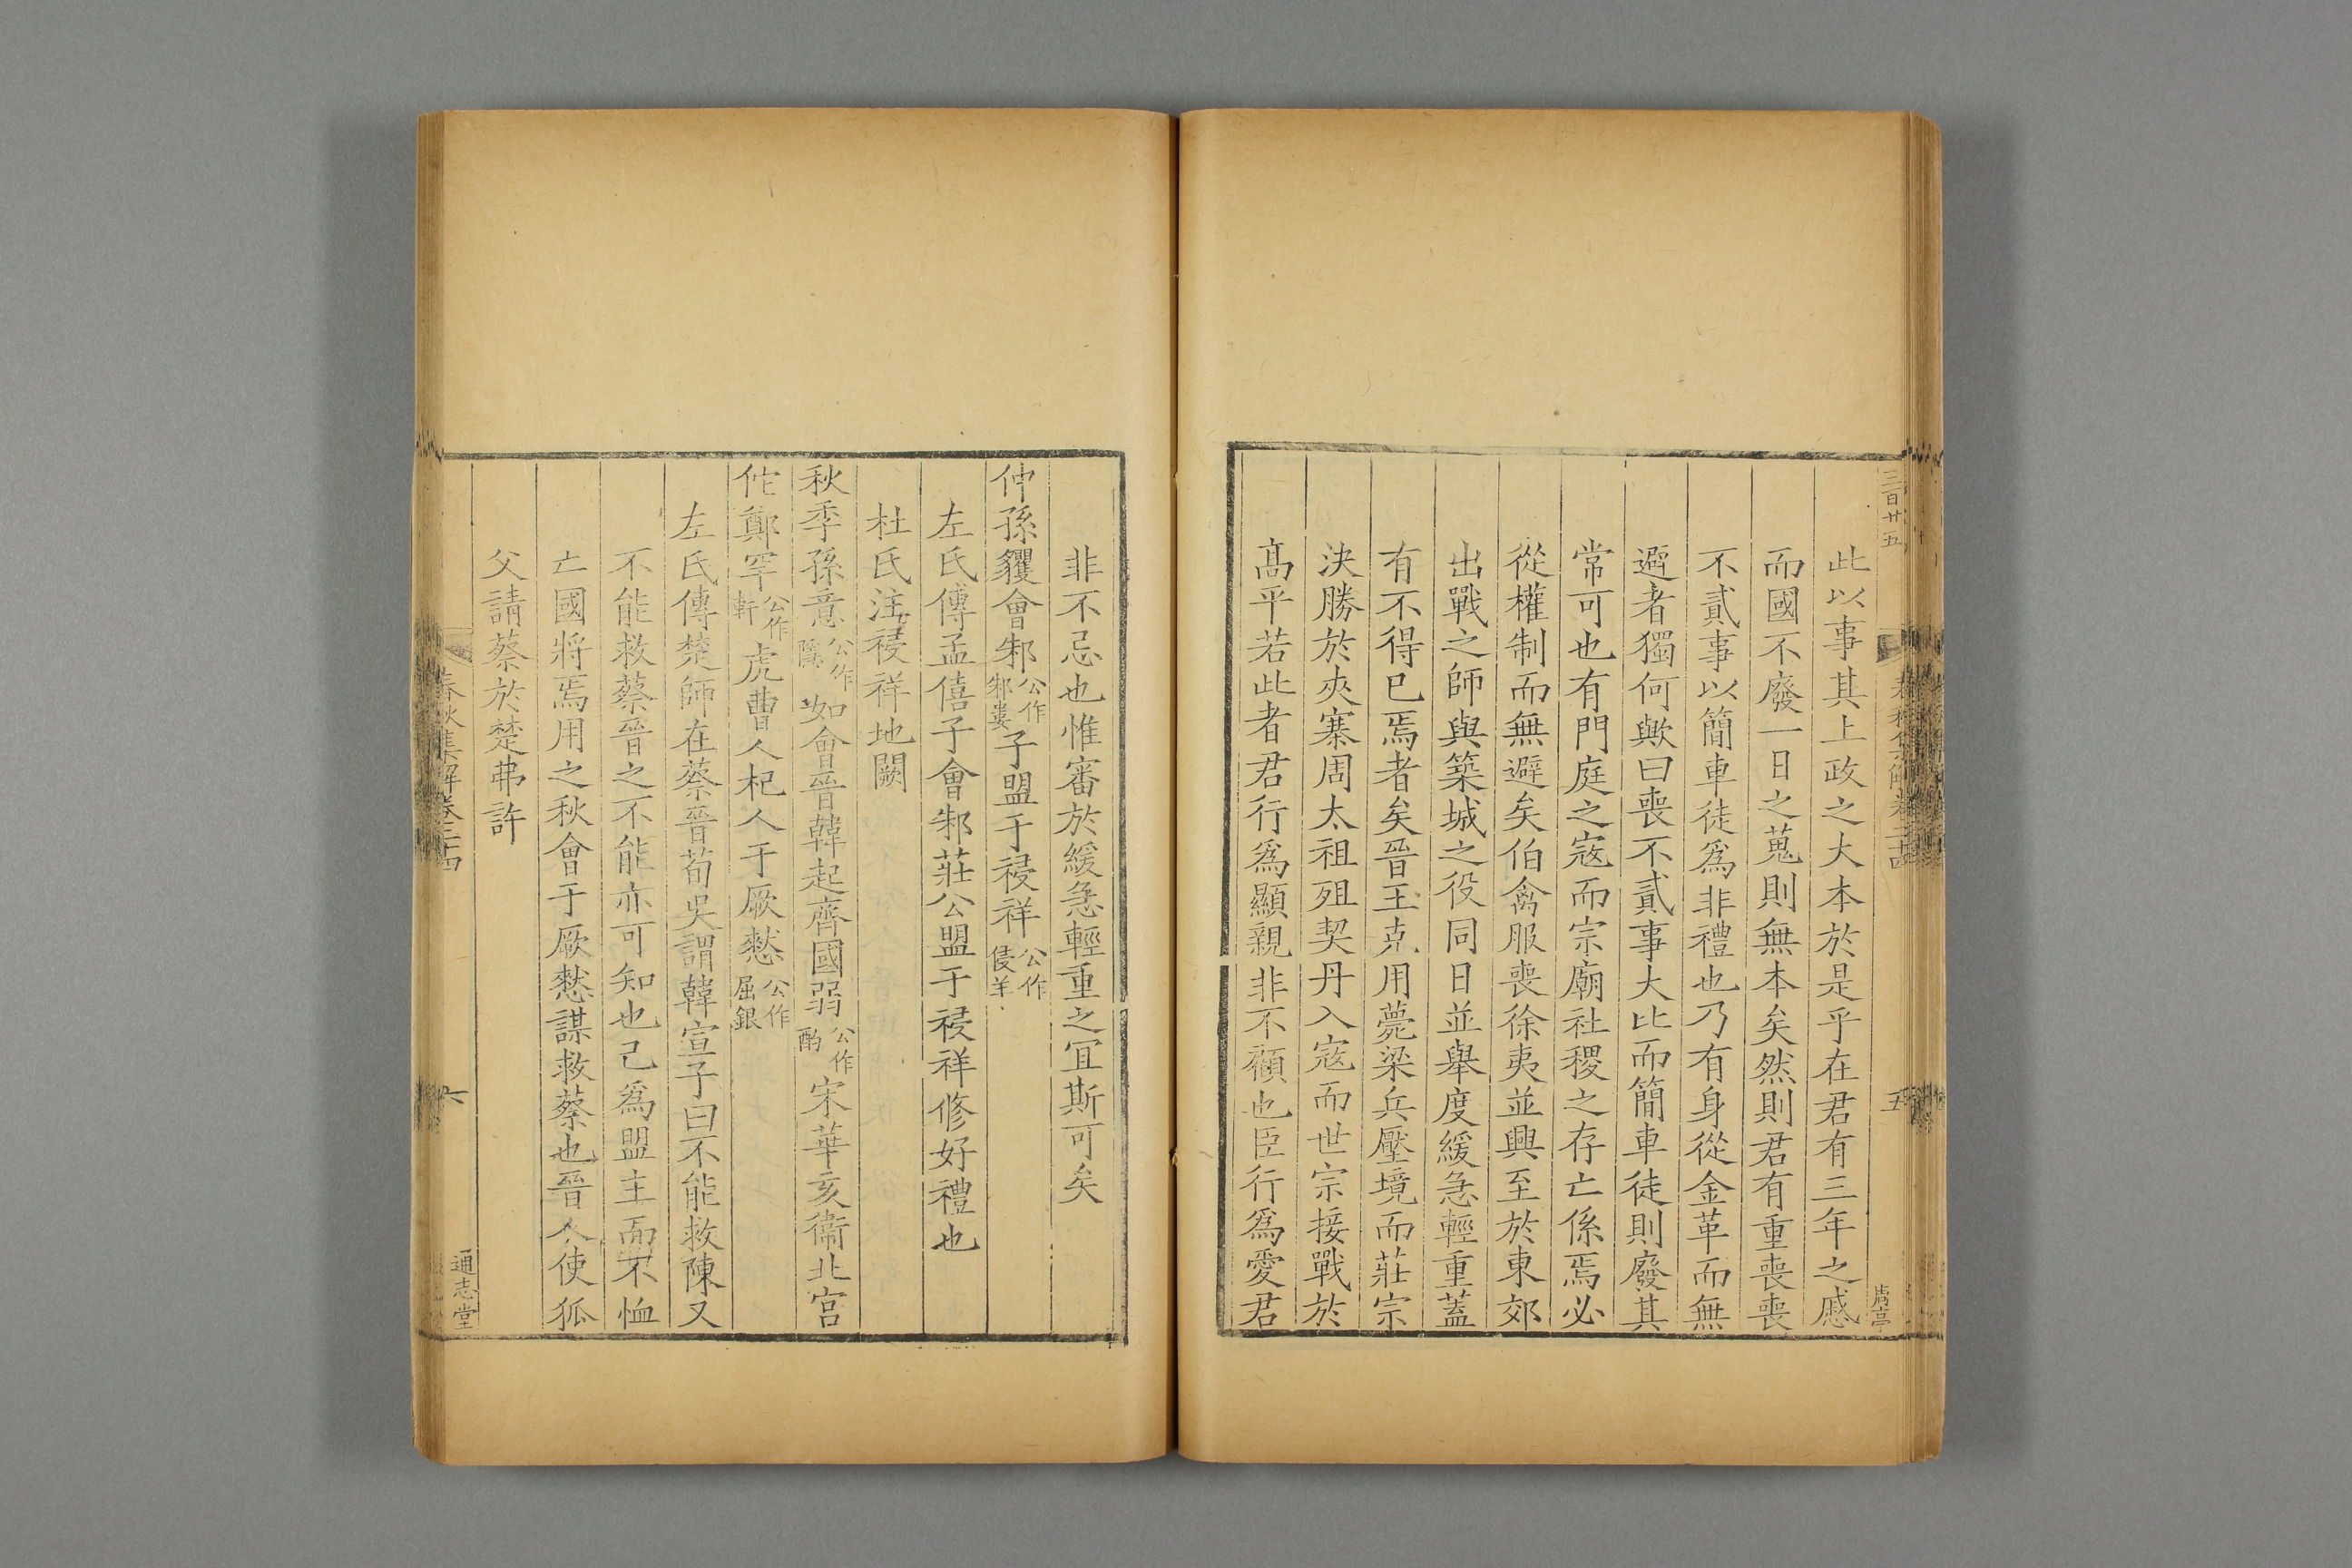 三百廿五
春秋集解卷二十四
五
此以事其上政之大本於是乎在君有三年之慼
而國不廢一日之蒐則無本矣然則君有重喪喪
不貳事以簡車徒爲非禮也乃有身從金革而無
避者獨何歟曰喪不貳事大比而簡車徒則廢其
常可也有門庭之寇而宗廟社稷之存亡係焉必
從權制而無避矣伯禽服喪徐夷並興至於東郊
出戰之師與築城之役同日並舉度緩急輕重蓋
有不得已焉者矣晉王克用薨梁兵壓境而莊宗
決勝於夾寨周太祖殂契丹入寇而世宗接戰於
高平若此者君行爲顯親非不顧也臣行爲愛君
非不忌也惟審於緩急輕重之宜斯可矣
仲孫貜會邾公作邾婁子盟于祲祥公作侵羊
左氏傳孟僖子會邾莊公盟于祲祥修好禮也
杜氏注祲祥地闕
秋季孫意公作隱如會晉韓起齊國弱公作酌宋華亥衛北宮
佗鄭罕公作軒虎曹人杞人于厥憖公作屈銀
左氏傳楚師在蔡晉荀吳謂韓宣子曰不能救陳又
不能救蔡晉之不能亦可知也己爲盟主而不恤
亡國將焉用之秋會于厥憖謀救蔡也晉人使狐
父請蔡於楚弗許
春秋集解卷二十四
六
通志堂